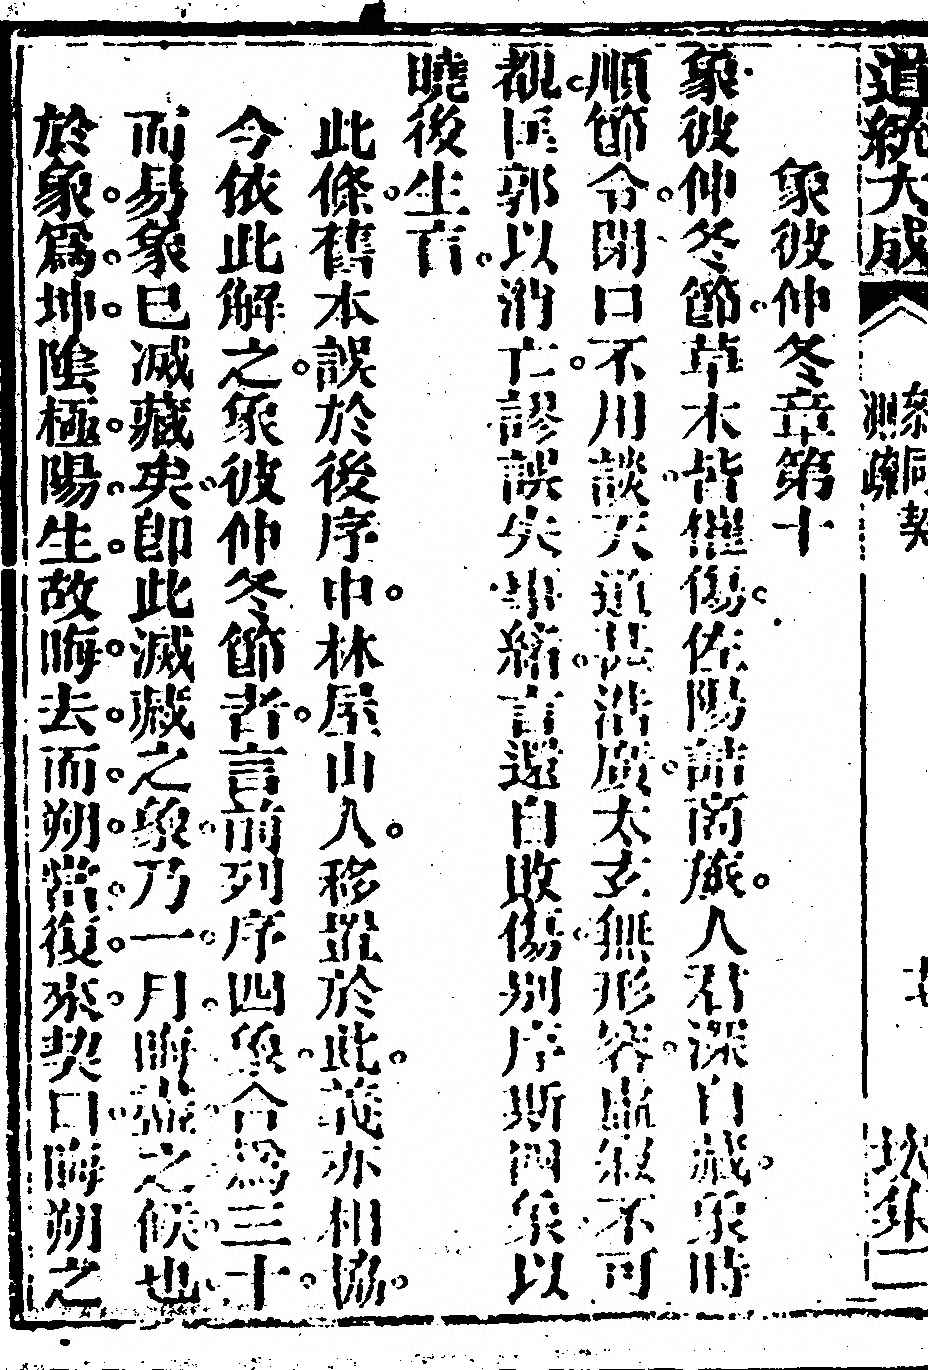 道統大成
參同契
測疏
坎集二
象彼仲冬章第十
象彼仲冬節草木皆摧傷佐陽詰商旅人君深自藏象時
順節令閉口不用談天道甚浩廣太玄無形容虛寂不可
覩匡郭以消亡謬誤失事緒言還自敗傷別序斯四象以
曉後生盲
此條舊本誤於後序中林屋山人移置於此義亦相協
今依此解之象彼仲冬節者言前列序四象合爲三十
而易象已滅藏矣卽此滅藏之象乃一月晦盡之候也
於象爲坤陰極陽生故晦去而朔當復來契曰晦朔之